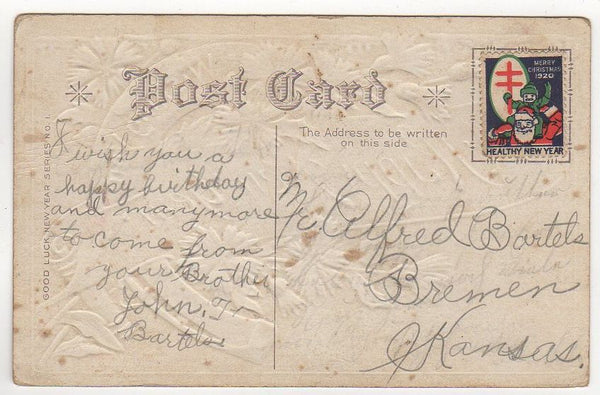 Post Card
MERRY
CHRISTMAS
1920
HEALTHY NEW YEAR
The Address to be written
on this side
GOOD LUCK NEW YEAR SERIES NO. 1.
I wish you a
happy birthday
and many more
to come from
your Brother
John. T.
Bartels.
Mr Alfred Bartels
Bremen
Kansas.